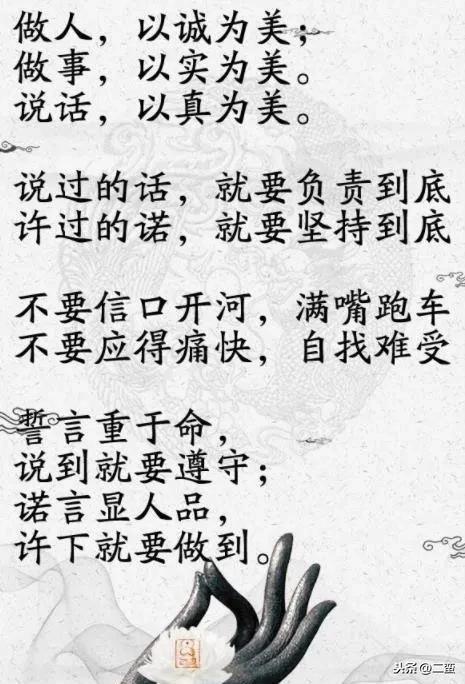 做人，以诚为美；
做事，以实为美。
说话，以真为美。
说过的话，就要负责到底
许过的诺，就要坚持到底
不要信口开河，满嘴跑车
不要应得痛快，自找难受
誓言重于命，
说到就要遵守；
诺言显人品，
许下就要做到。
头条@二蛮